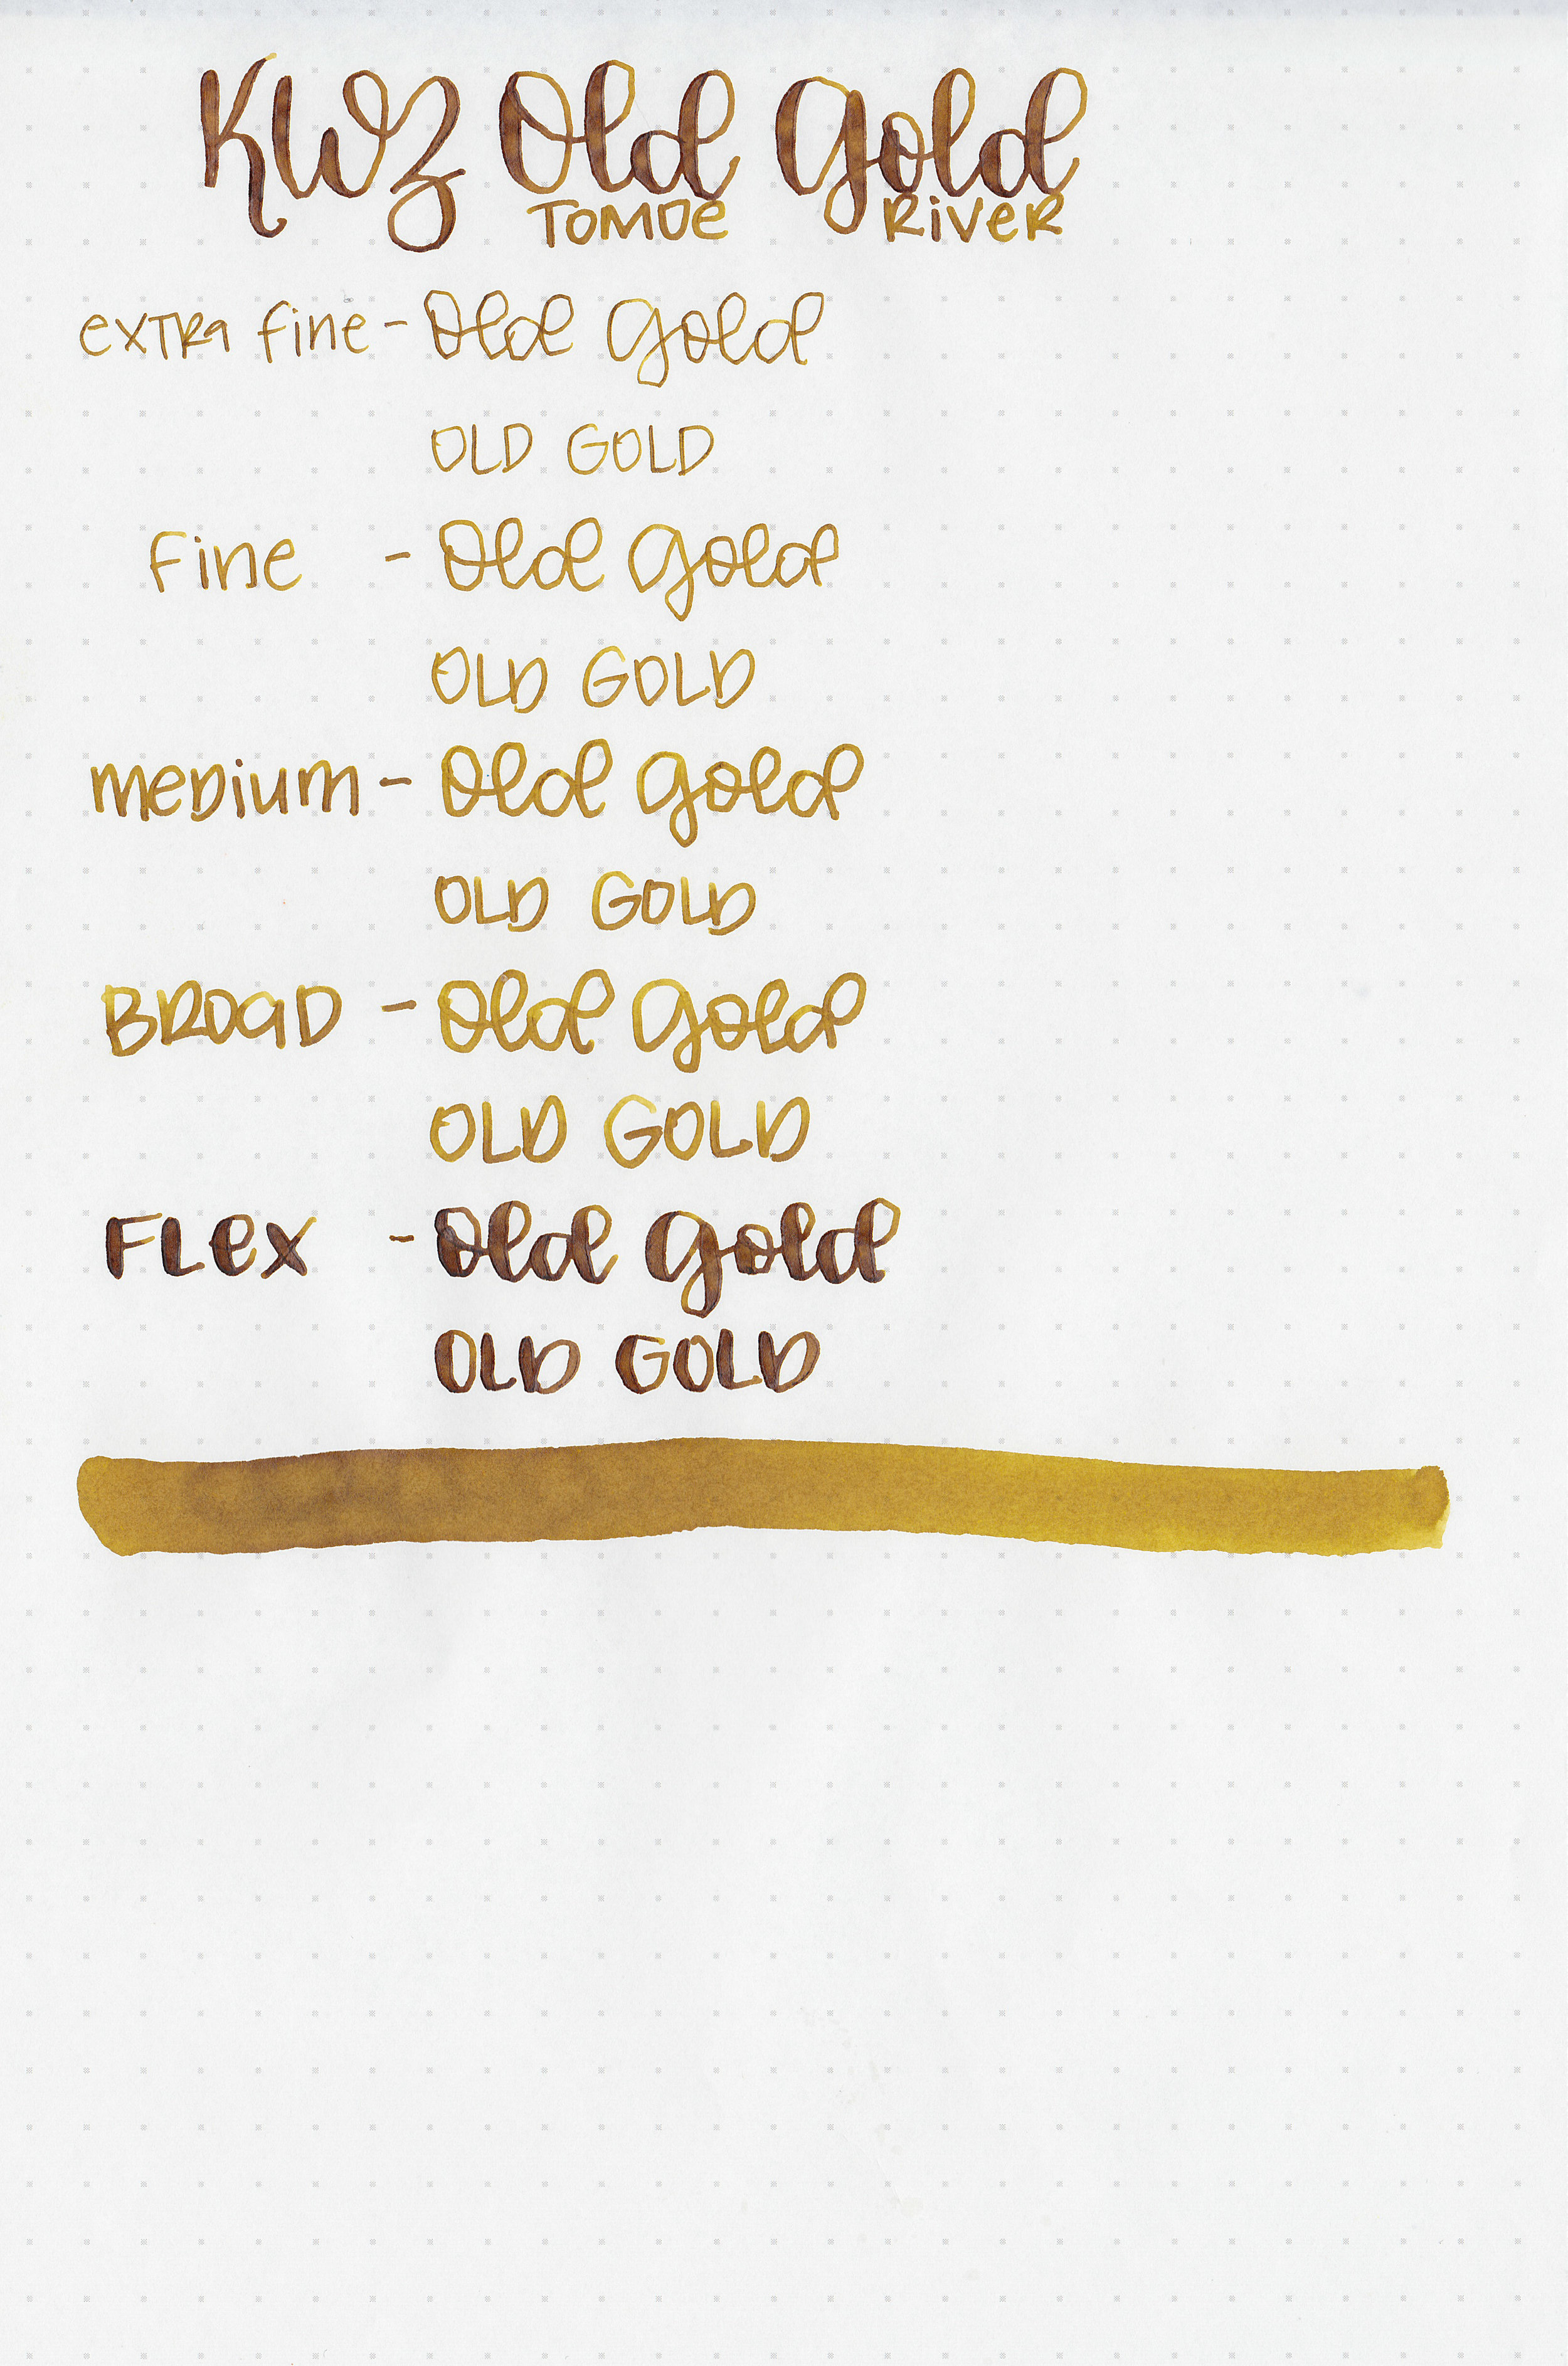 KWZ Old Gold
TOMOe RiveR
exTRa fine - Old Gold
OLD GOLD
Fine - Old Gold
OLD GOLD
meDium - Old Gold
OLD GOLD
BROaD - Old Gold
OLD GOLD
FLex - Old Gold
OLD GOLD